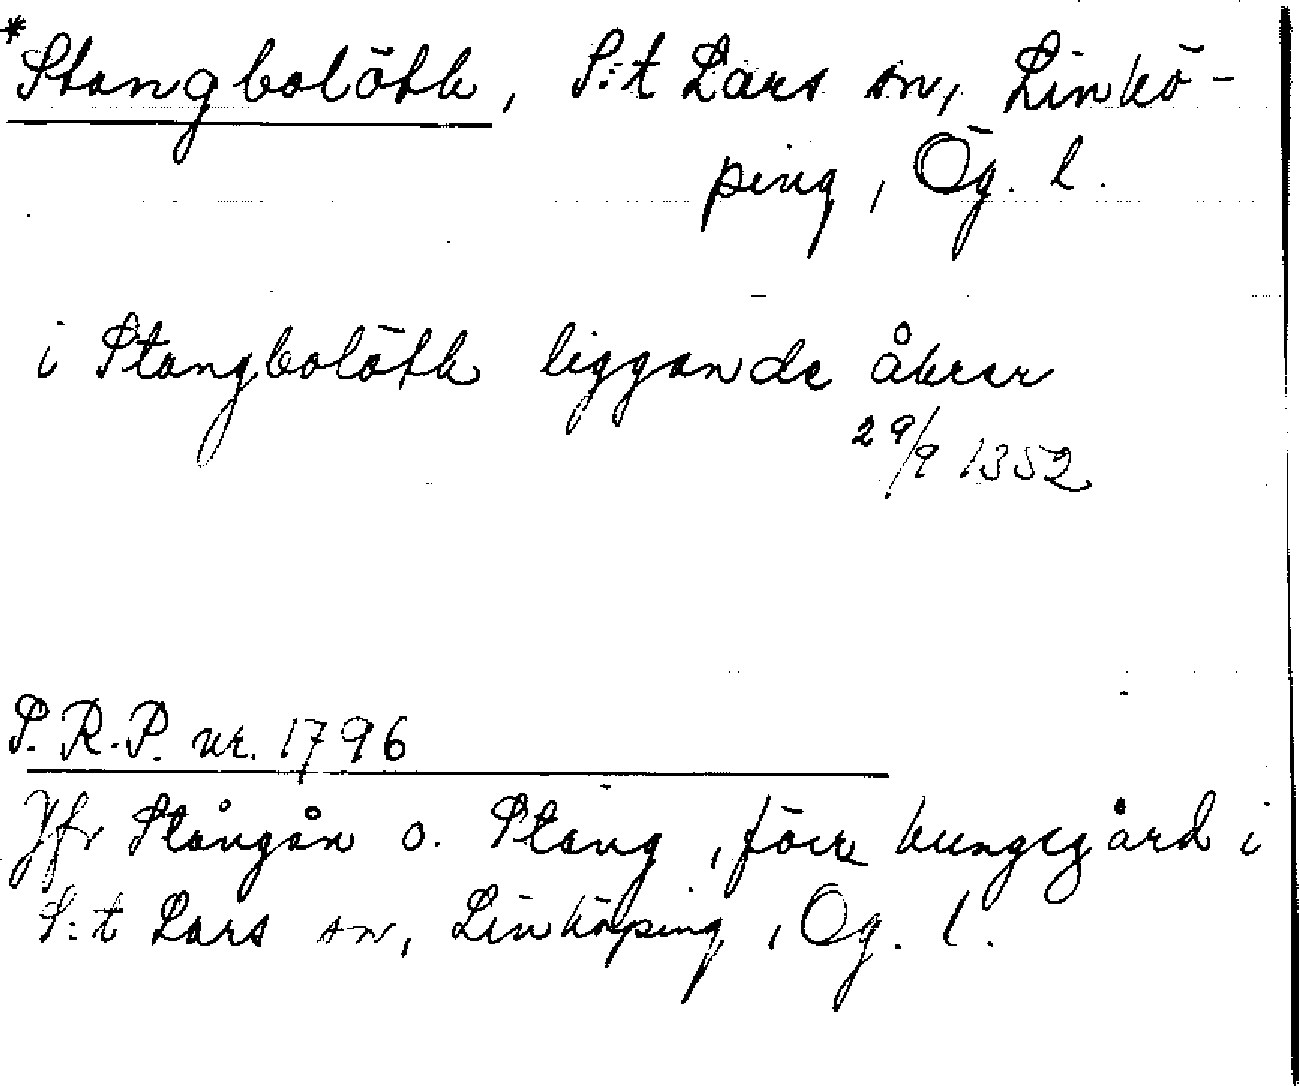 *Stangbolöth, S:t Lars sn, Linkö-
ping, Ög. l.
i Stangbolöth liggande åkrar
29/9 1352
S.R.P. nr. 1796
Jfr Stångån o. Stång, förr kungsgård i
S:t Lars sn, Linköping, Ög. l.